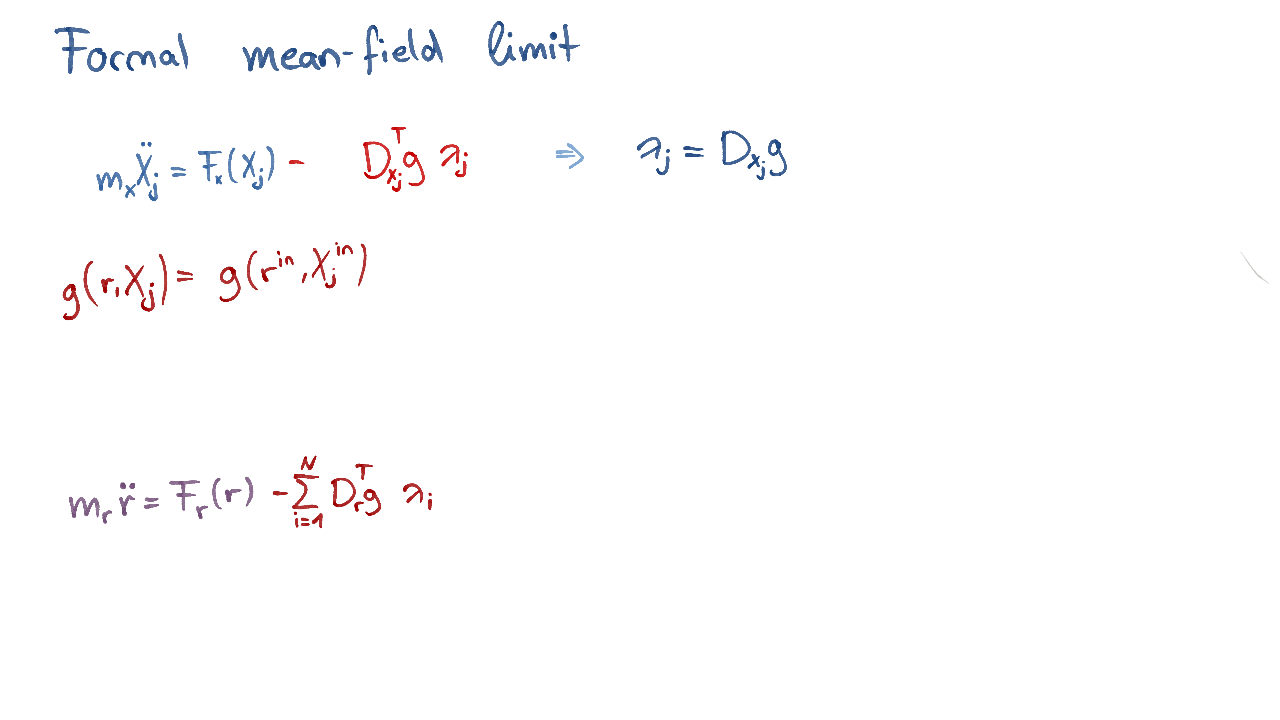 Formal mean-field limit
m_x Ẍ_j = F_x(X_j) - D_{x_j}^T g λ_j ⇒ λ_j = D_{x_j} g
g(r, X_j) = g(r^{in}, X_j^{in})
m_r r̈ = F_r(r) - \sum_{i=1}^{N} D_r^T g λ_i